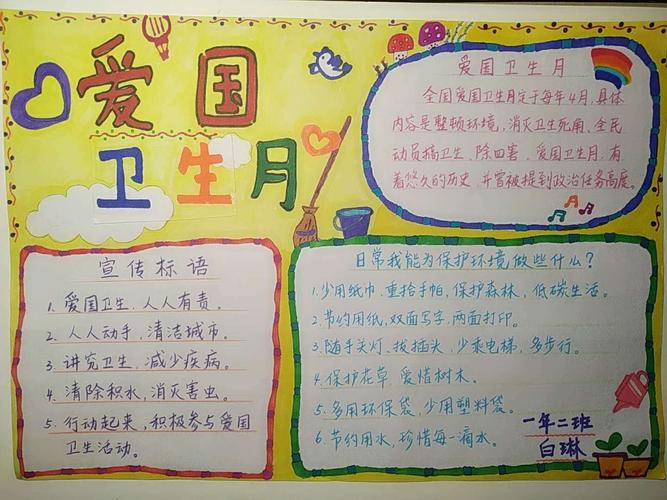 爱国
卫生月
爱国卫生月
全国爱国卫生月定于每年4月,具体
内容是整顿环境,消灭卫生死角、全民
动员搞卫生、除四害、爱国卫生月,有
着悠久的历史,并曾被提到政治任务高度。
宣传标语
1、爱国卫生,人人有责。
2、人人动手,清洁城市。
3、讲究卫生,减少疾病。
4、清除积水,消灭害虫。
5、行动起来,积极参与爱国
卫生活动。
日常我能为保护环境做些什么?
1.少用纸巾,重拾手帕,保护森林,低碳生活。
2.节约用纸,双面写字,两面打印。
3.随手关灯、拔插头,少乘电梯,多步行。
4.保护花草,爱惜树木。
5.多用环保袋,少用塑料袋。
6.节约用水,珍惜每一滴水。
一年二班
白琳